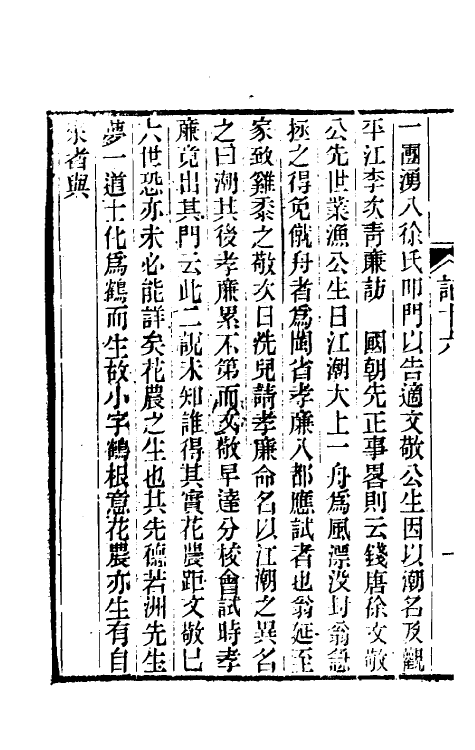 一團湧入徐氏叩門以告適文敬公生因以潮名及觀
平江李次青廉訪　國朝先正事畧則云錢唐徐文敬
公先世業漁公生日江潮大上一舟爲風漂沒封翁急
拯之得免僦舟者爲閩省孝廉入都應試者也翁延至
家致雞黍之敬次日洗兒請孝廉命名以江潮之異名
之曰潮其後孝廉累不第而文敬早達分校會試時孝
廉竟出其門云此二說未知誰得其實花農距文敬已
六世恐亦未必能詳矣花農之生也其先德若洲先生
夢一道士化爲鶴而生故小字鶴根意花農亦生有自
來者與
記十六